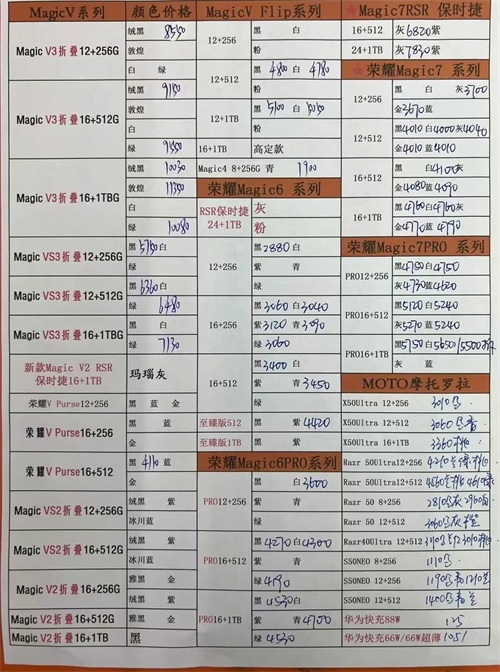 MagicV系列 颜色价格
Magic V3折叠12+256G
绒黑 8550
敦煌
白 绿
Magic V3折叠16+512G
绒黑 9150
敦煌
白
绿 9550
Magic V3折叠16+1TBG
绒黑 10030
敦煌 11350
白
绿 10080
Magic VS3折叠12+256G
黑5750白
绿
Magic VS3折叠12+512G
黑6360白
绿 6480
Magic VS3折叠16+1TBG
黑 白
绿 7130
新款Magic V2 RSR
保时捷16+1TB
玛瑙灰
荣耀V Purse12+256
黑 蓝 金
荣耀V Purse16+256
黑 蓝
金
荣耀V Purse16+512
黑 4110 蓝
金
Magic VS2折叠12+256G
绒黑 紫
冰川蓝
Magic VS2折叠16+512G
绒黑 紫
冰川蓝
Magic V2折叠16+256G
雅黑 金
绒黑 紫
Magic V2折叠16+512G
雅黑 金
Magic V2折叠16+1TB
黑
MagicV Flip系列
12+256
黑 白
粉
12+512
黑 4800 白 4780
粉
12+1TB
黑 5100 白
粉
16+1TB 高定款
Magic4 8+256G 青 1900
荣耀Magic6 系列
RSR保时捷
24+1TB
灰
粉
12+256
黑2880白
紫 青
绿
16+256
黑3060白3040
紫3120青3090
绿3060
16+512
黑3400白
紫 青3450
绿
至臻版512 紫 黑4420
至臻版1TB 黑 紫
荣耀Magic6PRO系列
PRO12+256
黑 3600
紫 青
绿
PRO16+512
黑4270白4300
紫 青
绿4190
PRO16+1TB
黑4530白
紫 青4700
绿4530
★Magic7RSR 保时捷
16+512 灰6820紫
24+1TB 灰7830紫
★荣耀Magic7 系列
12+256
黑 白 灰3700
金3670蓝
12+512
黑4010白4000灰4040
金4010蓝4010
16+512
黑 白4100灰
金4080蓝4090
16+1TB
黑4760白4760灰
金4770蓝4790
荣耀Magic7PRO 系列
PRO12+256
黑4750白4750
灰4730蓝4620
PRO16+512
黑5120白5240
灰5270蓝5240
PRO16+1TB
黑5750白5650/5500
灰 蓝
MOTO摩托罗拉
X50Ultra 12+256 3010
X50Ultra 12+512 3060
X50Ultra 16+1TB 3360
Razr 50Ultra12+256 4210
Razr 50Ultra12+512 4560
Razr 50 8+256 2810 灰2960
Razr 50 12+512 3060
Razr40Ultra 12+512
S50NEO 8+256 1110
S50NEO 12+256 1190
S50NEO 12+512 1400
华为快充88W 125
华为快充66W/66W超薄 105/